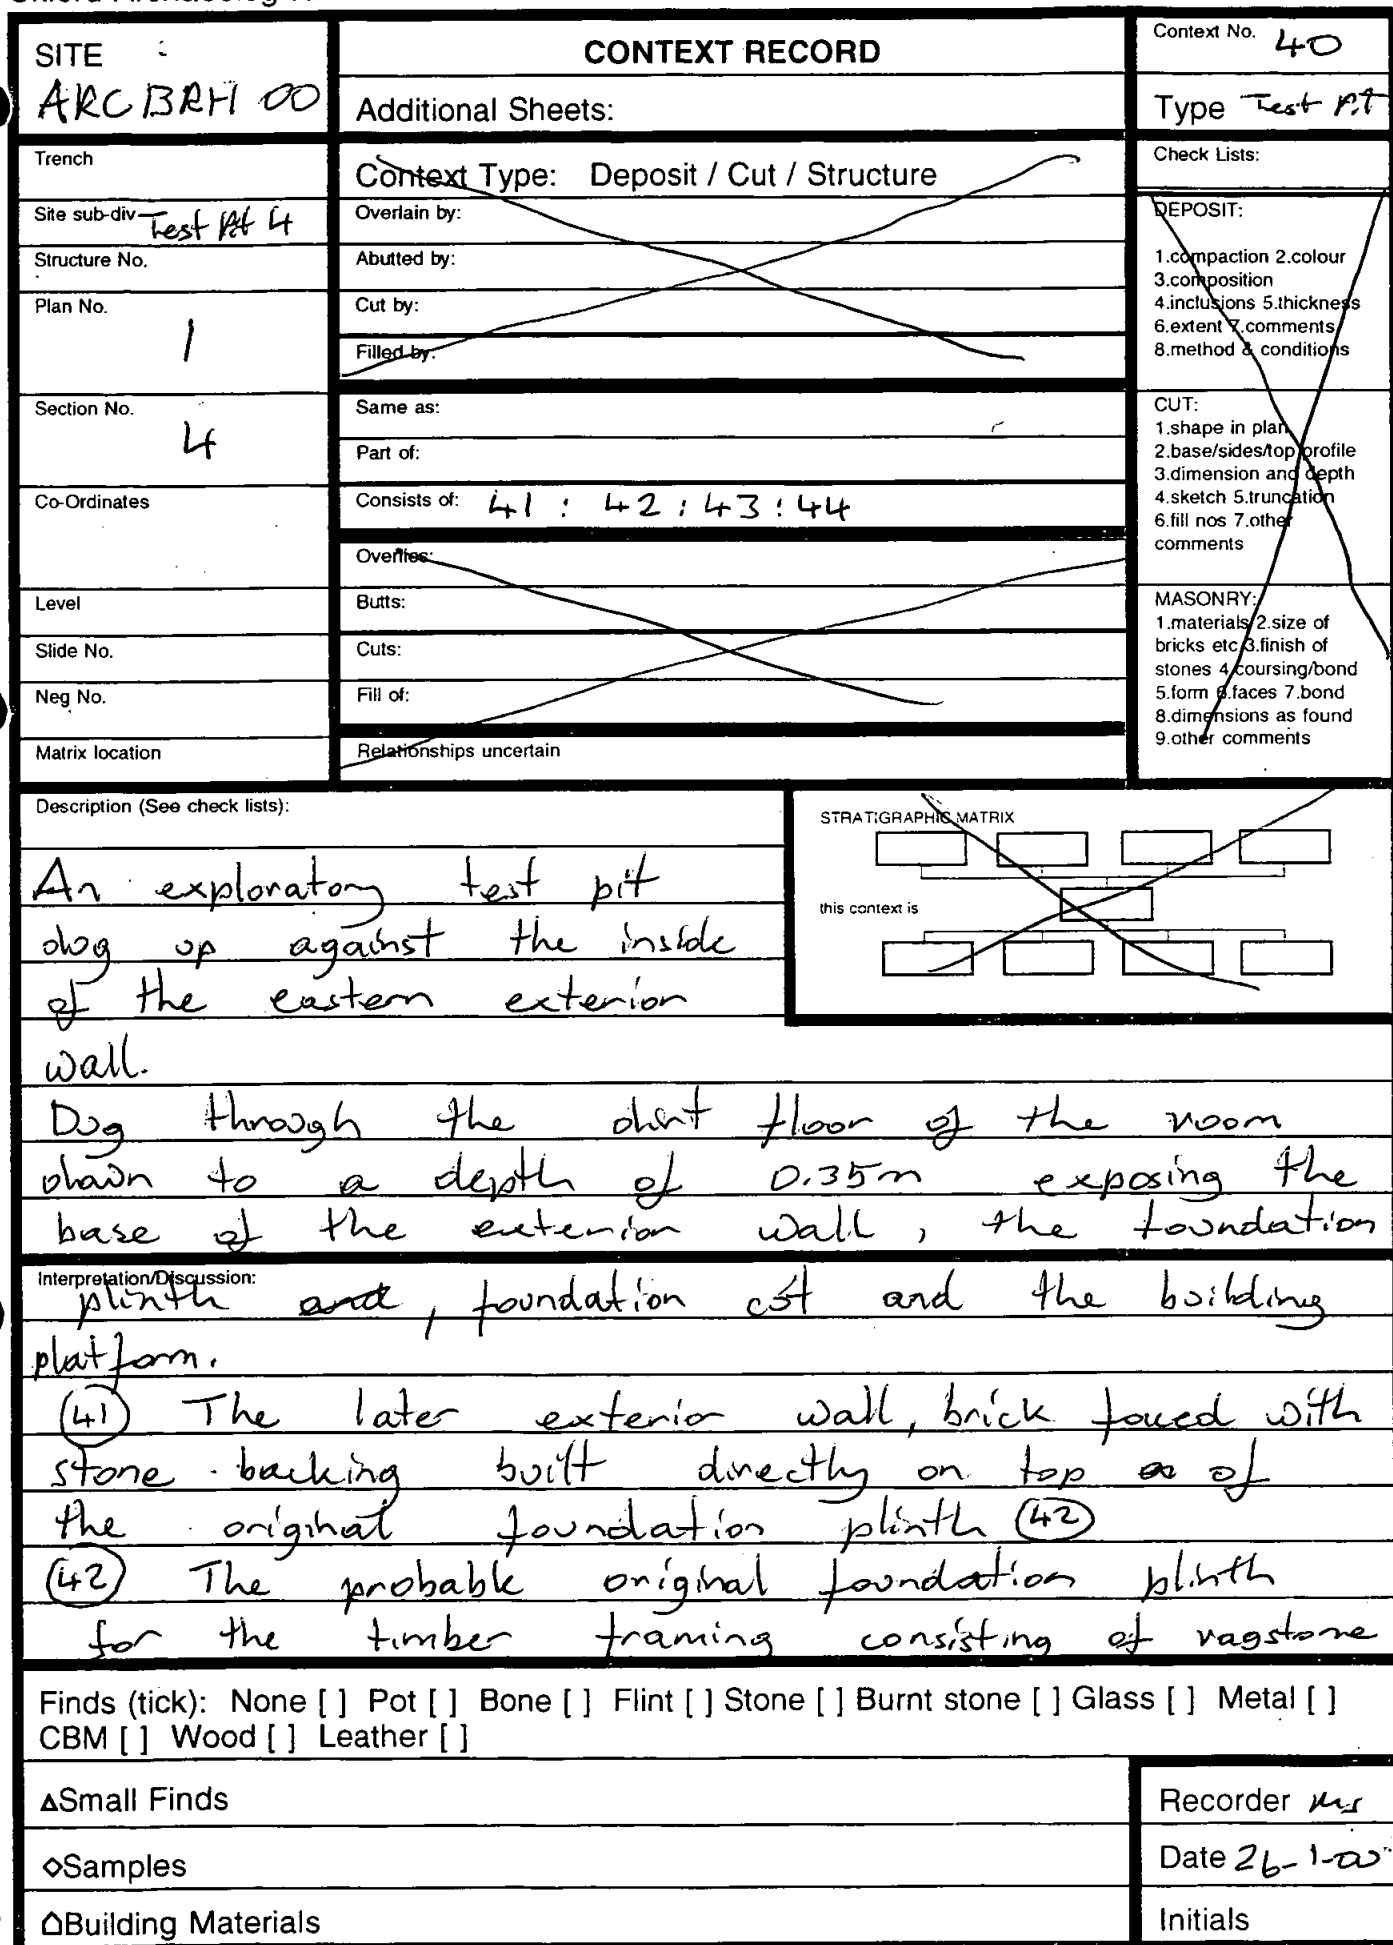 SITE :
ARCBRH 00
CONTEXT RECORD
Additional Sheets:
Context No. 40
Type Test Pit
Trench
Site sub-div Test Pit 4
Structure No.
Plan No.
1
Section No.
4
Co-Ordinates
Level
Slide No.
Neg No.
Matrix location
Context Type: Deposit / Cut / Structure
Overlain by:
Abutted by:
Cut by:
Filled by:
Same as:
Part of:
Consists of: 41 : 42 : 43 : 44
Overlies:
Butts:
Cuts:
Fill of:
Relationships uncertain
Check Lists:
DEPOSIT:
1.compaction 2.colour
3.composition
4.inclusions 5.thickness
6.extent 7.comments
8.method & conditions
CUT:
1.shape in plan
2.base/sides/top profile
3.dimension and depth
4.sketch 5.truncation
6.fill nos 7.other
comments
MASONRY:
1.materials 2.size of
bricks etc 3.finish of
stones 4.coursing/bond
5.form 6.faces 7.bond
8.dimensions as found
9.other comments
Description (See check lists):
An exploratory test pit
dug up against the inside
of the eastern exterior
wall.
Dug through the dirt floor of the room
down to a depth of 0.35m exposing the
base of the exterior wall, the foundation
STRATIGRAPHIC MATRIX
this context is
Interpretation/Discussion:
plinth and, foundation cut and the building
platform.
(41) The later exterior wall, brick faced with
stone backing built directly on top of
the original foundation plinth (42)
(42) The probable original foundation plinth
for the timber framing consisting of ragstone
Finds (tick): None [ ] Pot [ ] Bone [ ] Flint [ ] Stone [ ] Burnt stone [ ] Glass [ ] Metal [ ]
CBM [ ] Wood [ ] Leather [ ]
△Small Finds
◇Samples
⌂Building Materials
Recorder
Date 26-1-00
Initials